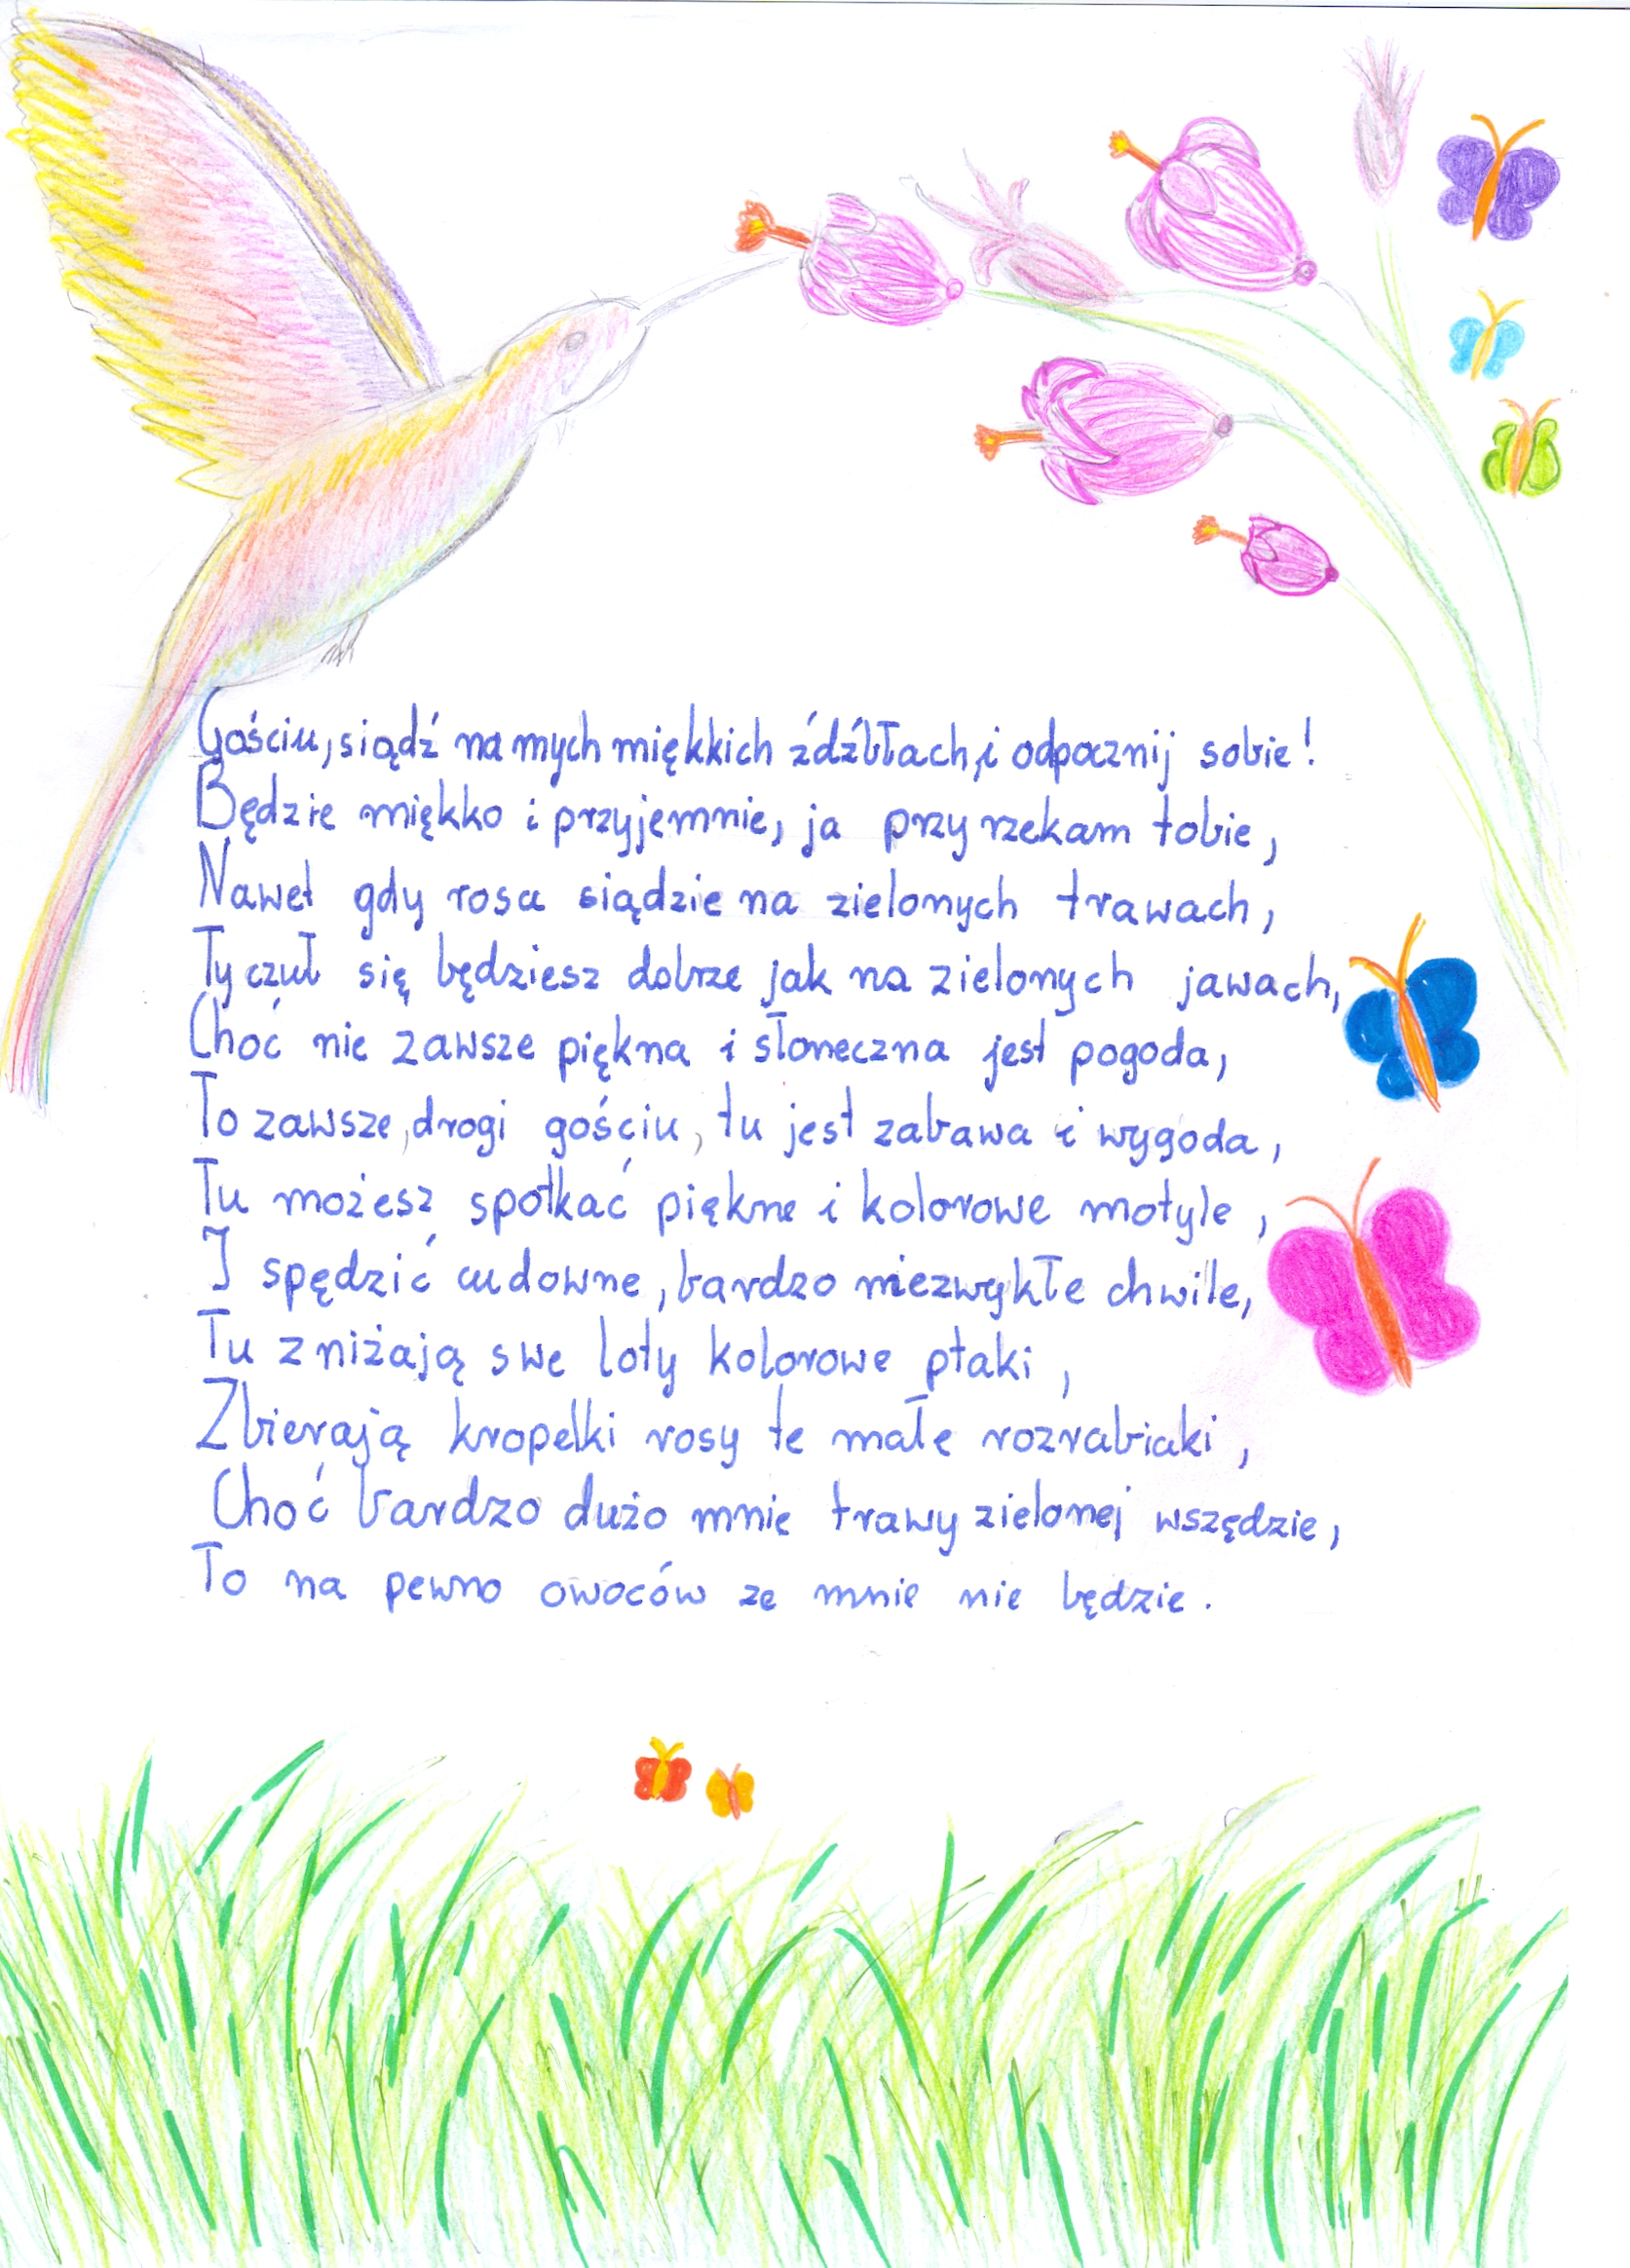 Gościu, siądź na mych miękkich źdźbłach, i odpocznij sobie!
Będzie miękko i przyjemnie, ja przyrzekam tobie,
Nawet gdy rosa siądzie na zielonych trawach,
Ty czuł się będziesz dobrze jak na zielonych jawach,
Choć nie zawsze piękna i słoneczna jest pogoda,
To zawsze, drogi gościu, tu jest zabawa i wygoda,
Tu możesz spotkać piękne i kolorowe motyle,
I spędzić cudowne, bardzo niezwykłe chwile,
Tu zniżają swe loty kolorowe ptaki,
Zbierają kropelki rosy te małe rozrabiaki,
Choć bardzo dużo mnie trawy zielonej wszędzie,
To na pewno owoców ze mnie nie będzie.